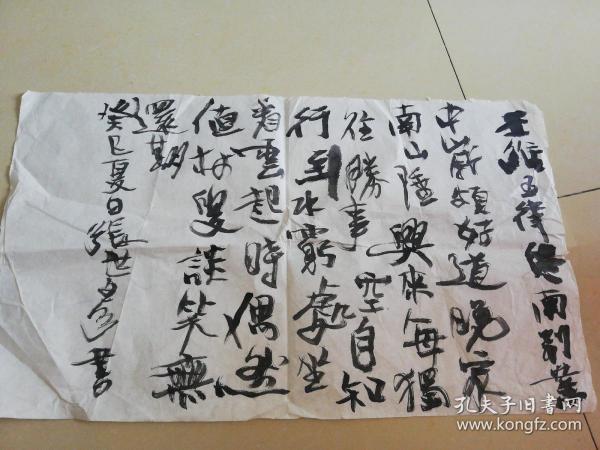 王維五律終南别業
中歲頗好道晚家
南山陲興來每獨
往勝事空自知
行到水窮處坐
看雲起時偶然
值林叟談笑無
還期
癸巳夏日張世書
孔夫子旧书网
www.kongfz.com